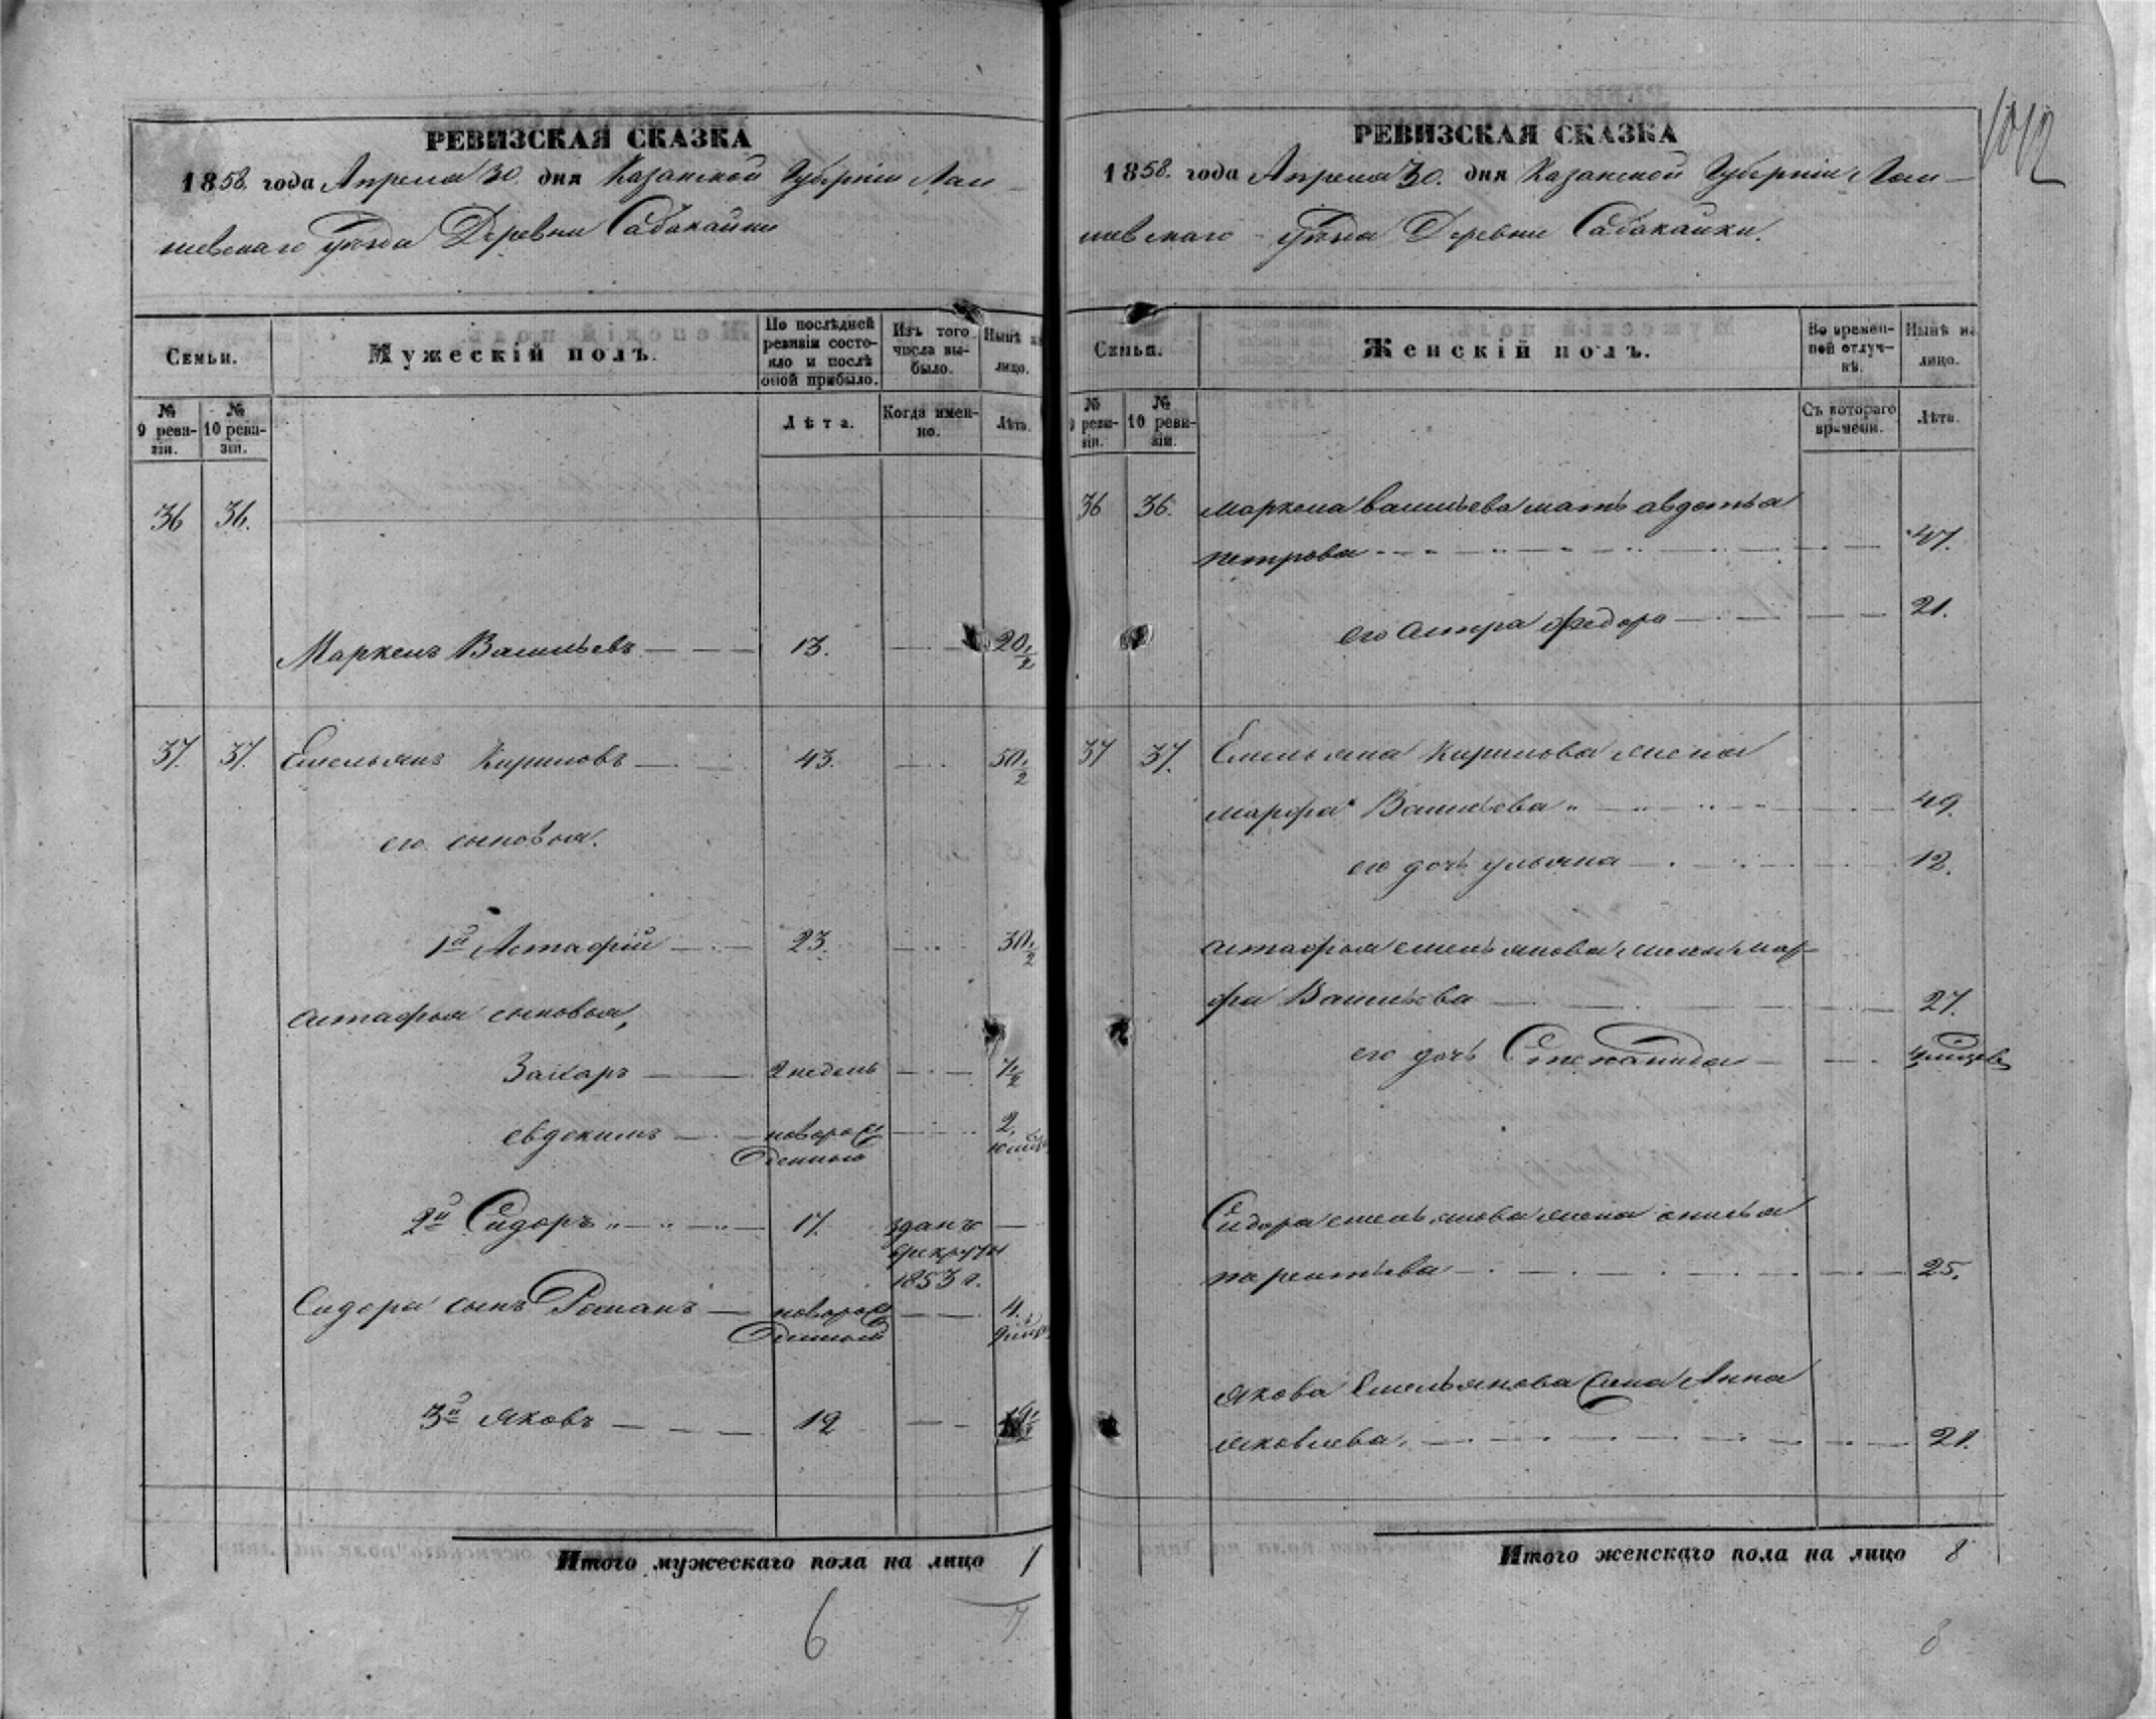 РЕВИЗСКАЯ СКАЗКА
1858. года Апреля 30. дня Казанской Губерніи Лаи-
шевскаго уѣзда Деревни Сабакайки
Семьи.
Мужескій полъ.
По послѣдней ревизіи состояло и послѣ оной прибыло.
Изъ того числа выбыло.
Нынѣ на лицо.
№ 9 ревизіи.
№ 10 ревизіи.
Лѣта.
Когда именно.
Лѣта.
36 36.
Маркелъ Васильевъ 13. 20 1/2
37. 37. Емельянъ Кириловъ 43. 50 1/2
его сыновья.
1й Астафій 23. 30 1/2
астафья сыновья,
Захаръ 2 недель 7 1/2
евдокимъ новорож
денный 2,
2й Сидоръ 17. зданъ
врекруты
1853 г.
Сидора сынъ Романъ новорож 4.
денный
3й яковъ 12 19 1/2
Итого мужескаго пола на лицо 7
6 7
РЕВИЗСКАЯ СКАЗКА
1012
1858. года Апреля 30. дня Казанской Губерніи Лаи-
шевскаго уѣзда Деревни Сабакайки.
Семьи.
Женскій полъ.
Во временной отлучкѣ.
Нынѣ на лицо.
№ 9 ревизіи.
№ 10 ревизіи.
Съ котораго времени.
Лѣта.
36 36. маркела васильева мать авдотья
петрова 47.
его сестра федора 21.
37 37. Емельяна Кирилова жена
марфа Васильева 49.
его дочь ульяна 12.
астафья емельянова жена мар-
фа Васильева 27.
его дочь Степанида
Сидора емельянова жена
25.
якова Емельянова жена Анна
яковлева. 21.
Итого женскаго пола на лицо 8
8